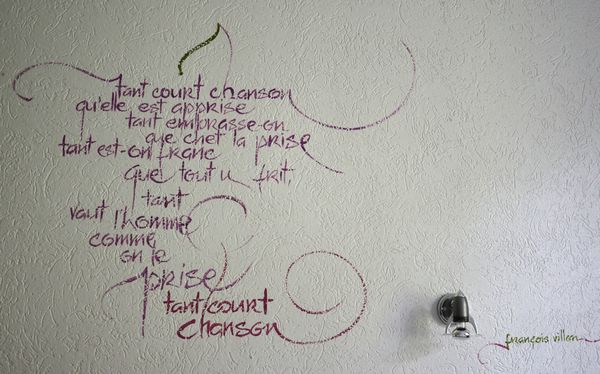 tant court chanson
qu'elle est apprise
tant embrasse-on
que chet la prise
tant est-on franc
que tout u frit,
tant
vaut l'homme
comme
on le
prise
tant court
chanson
françois villon